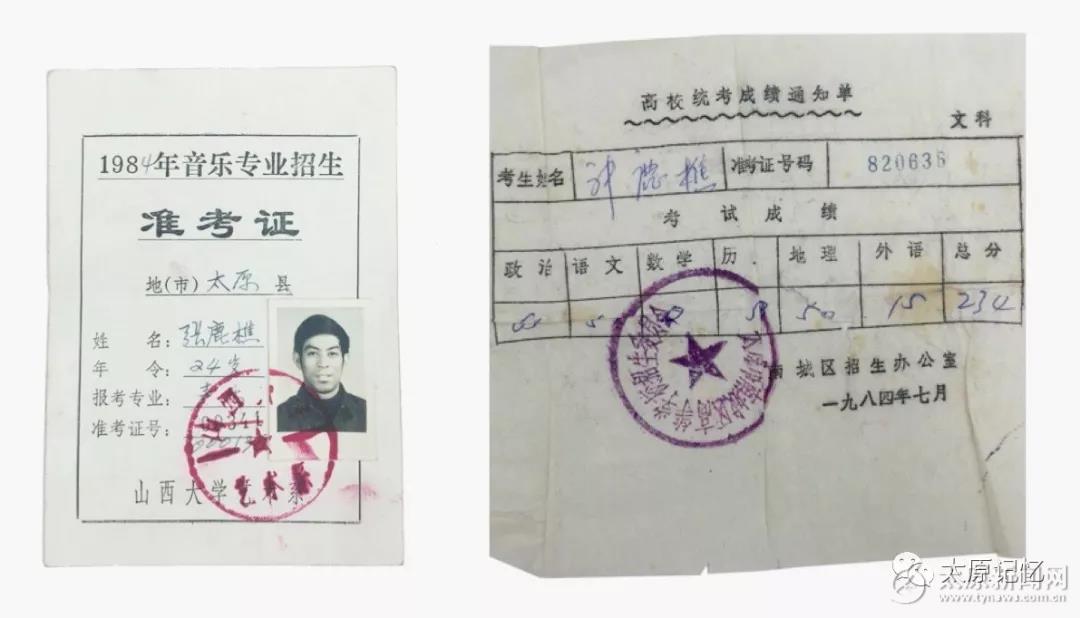 1984年音乐专业招生
准考证
地(市)太原县
姓 名:张鹿樵
年 令:24岁
报考专业:
准考证号:
山西大学艺术系
艺术系
高校统考成绩通知单
文科
考生姓名 张鹿樵 准考证号码 820636
考 试 成 绩
政治 语文 数学 历 地理 外语 总分
50 50 15 234
南城区招生办公室
一九八四年七月
太原记忆
太原新闻网
www.tynews.com.cn